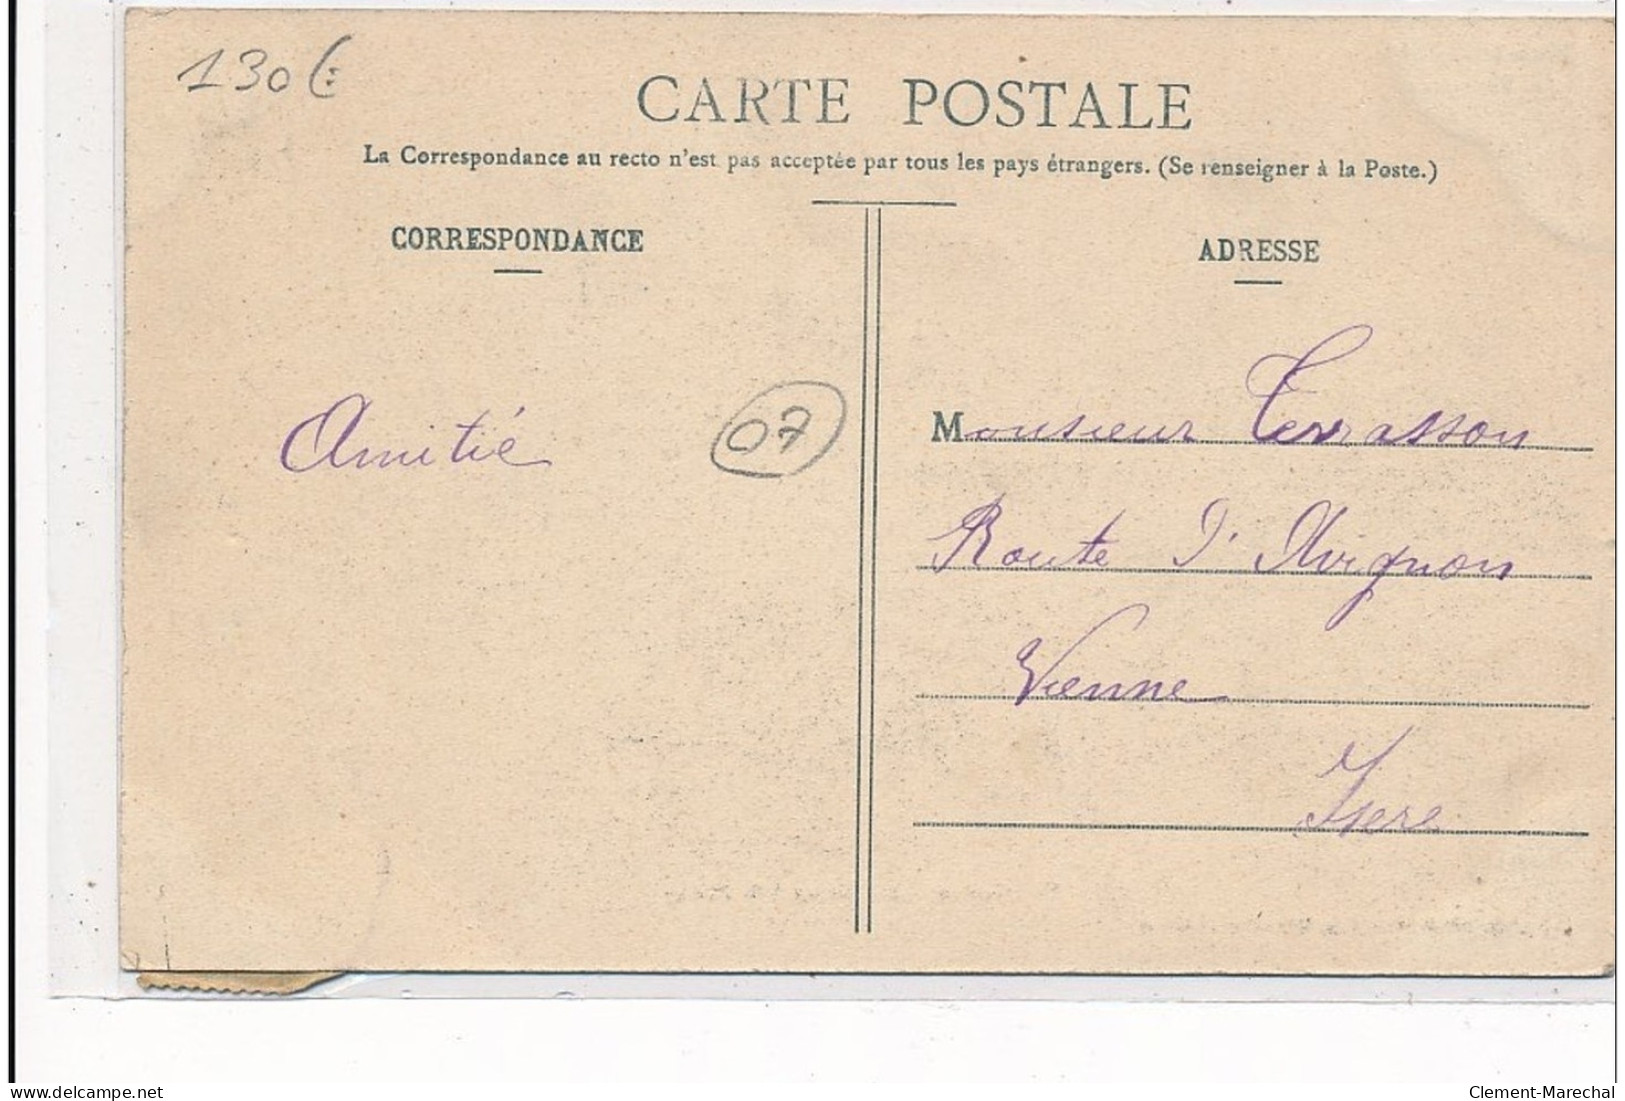 130€
CARTE POSTALE
La Correspondance au recto n'est pas acceptée par tous les pays étrangers. (Se renseigner à la Poste.)
CORRESPONDANCE
ADRESSE
Amitié
07
Monsieur Terrasson
Route d'Avignon
Vienne
Isere
www.delcampe.net
Clement-Marechal